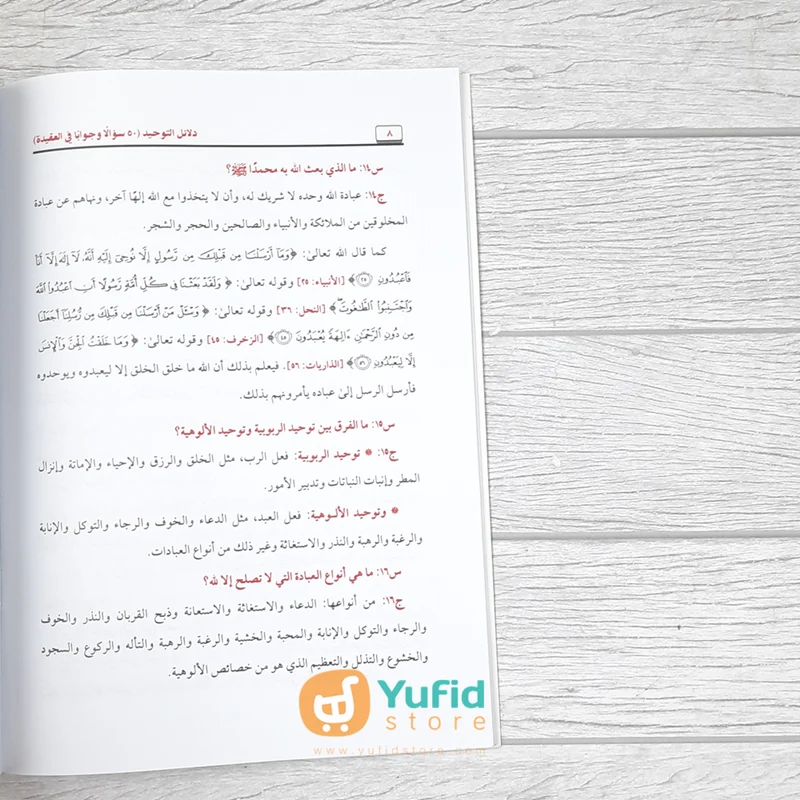 ٨
دلائل التوحيد (٥٠ سؤالًا وجوابًا في العقيدة)
س١٤: ما الذي بعث الله به محمدًا ﷺ؟
ج١٤: عبادة الله وحده لا شريك له، وأن لا يتخذوا مع الله إلهًا آخر، ونهاهم عن عبادة
المخلوقين من الملائكة والأنبياء والصالحين والحجر والشجر.
كما قال الله تعالىٰ: ﴿وَمَآ أَرْسَلْنَا مِن قَبْلِكَ مِن رَّسُولٍ إِلَّا نُوحِىٓ إِلَيْهِ أَنَّهُۥ لَآ إِلَٰهَ إِلَّآ أَنَا۠
فَٱعْبُدُونِ ٢٥﴾ [الأنبياء: ٢٥] وقوله تعالىٰ: ﴿وَلَقَدْ بَعَثْنَا فِى كُلِّ أُمَّةٍ رَّسُولًا أَنِ ٱعْبُدُوا۟ ٱللَّهَ
وَٱجْتَنِبُوا۟ ٱلطَّٰغُوتَ﴾ [النحل: ٣٦] وقوله تعالىٰ: ﴿وَسْـَٔلْ مَنْ أَرْسَلْنَا مِن قَبْلِكَ مِن رُّسُلِنَآ أَجَعَلْنَا
مِن دُونِ ٱلرَّحْمَٰنِ ءَالِهَةً يُعْبَدُونَ ٤٥﴾ [الزخرف: ٤٥] وقوله تعالىٰ: ﴿وَمَا خَلَقْتُ ٱلْجِنَّ وَٱلْإِنسَ
إِلَّا لِيَعْبُدُونِ ٥٦﴾ [الذاريات: ٥٦]. فيعلم بذلك أن الله ما خلق الخلق إلا ليعبدوه ويوحدوه
فأرسل الرسل إلىٰ عباده يأمرونهم بذلك.
س١٥: ما الفرق بين توحيد الربوبية وتوحيد الألوهية؟
ج١٥: * توحيد الربوبية: فعل الرب، مثل الخلق والرزق والإحياء والإماتة وإنزال
المطر وإنبات النباتات وتدبير الأمور.
* وتوحيد الألوهية: فعل العبد، مثل الدعاء والخوف والرجاء والتوكل والإنابة
والرغبة والرهبة والنذر والاستغاثة وغير ذلك من أنواع العبادات.
س١٦: ما هي أنواع العبادة التي لا تصلح إلا لله؟
ج١٦: من أنواعها: الدعاء والاستغاثة والاستعانة وذبح القربان والنذر والخوف
والرجاء والتوكل والإنابة والمحبة والخشية والرغبة والرهبة والتأله والركوع والسجود
والخشوع والتذلل والتعظيم الذي هو من خصائص الألوهية.
Yufid
store
www.yufidstore.com